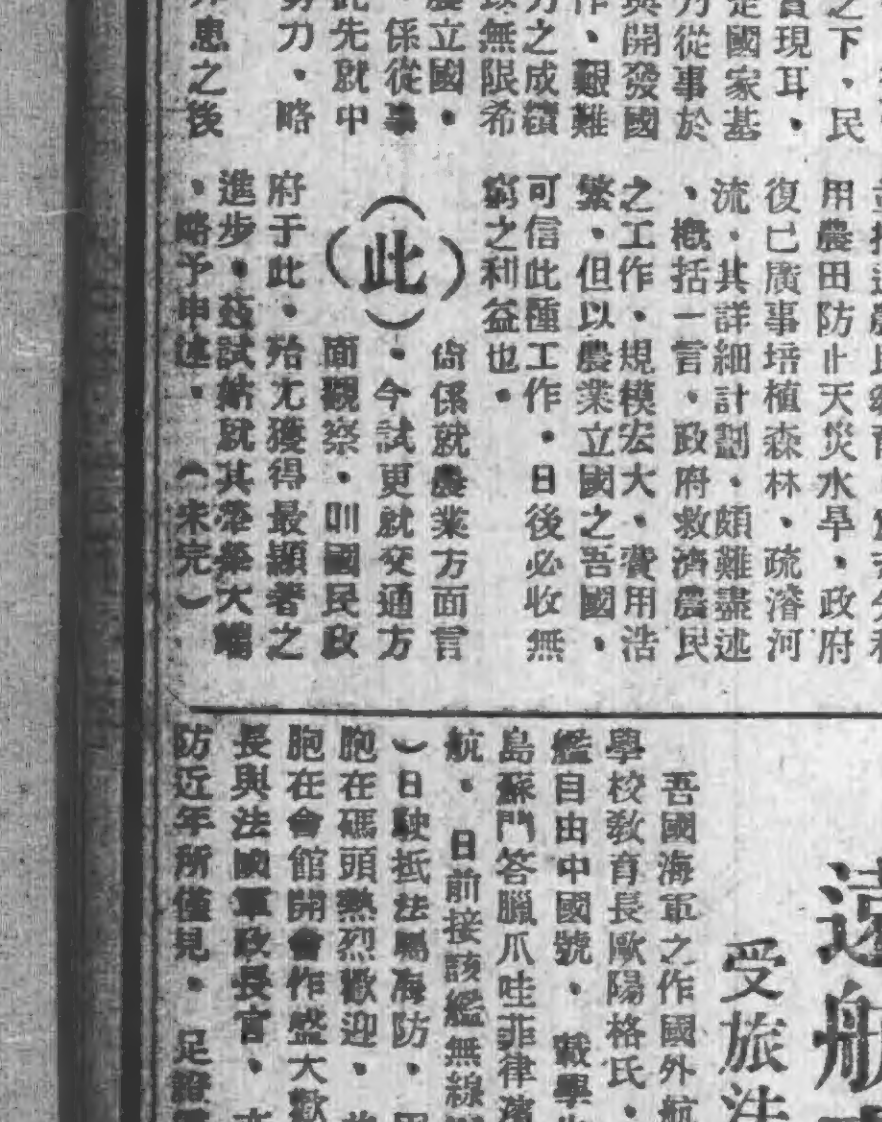 之下、民
實現耳、
定國家基
乃從事於
與開發國
作、艱難
力之成績
以無限希
農立國、
係從事
此先就中
努力、略
患之後
用農田防止天災水旱、政府
復已廣事培植森林、疏濬河
流、其詳細計劃、頗難盡述
、概括一言、政府救濟農民
之工作、規模宏大、費用浩
繁、但以農業立國之吾國、
可信此種工作、日後必收無
窮之利益也、
(此)
係就農業方面言
、今試更就交通方
面觀察、則國民政
府于此、殆尤獲得最顯著之
進步、茲試就其犖犖大端
、略予申述、(未完)
遠航
受旅法
吾國海軍之作國外航
學校教育長歐陽格氏、
艦自由中國號、載學
島蘇門答臘爪哇菲律濱
航、日前接該艦無線
)日駛抵法屬海防、
胞在碼頭熱烈歡迎、
胞在會館開會作盛大歡
長與法國軍政長官、
防近年所僅見、足證